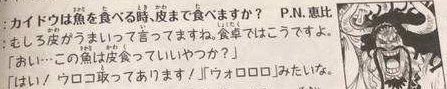 :カイドウは魚を食べる時、皮まで食べますか? P.N.恵比
:むしろ皮がうまいって言ってますね。食卓ではこうですよ。
「おい…この魚は皮食っていいやつか?」
「はい!ウロコ取ってあります!」「ウォロロロ」みたいな。